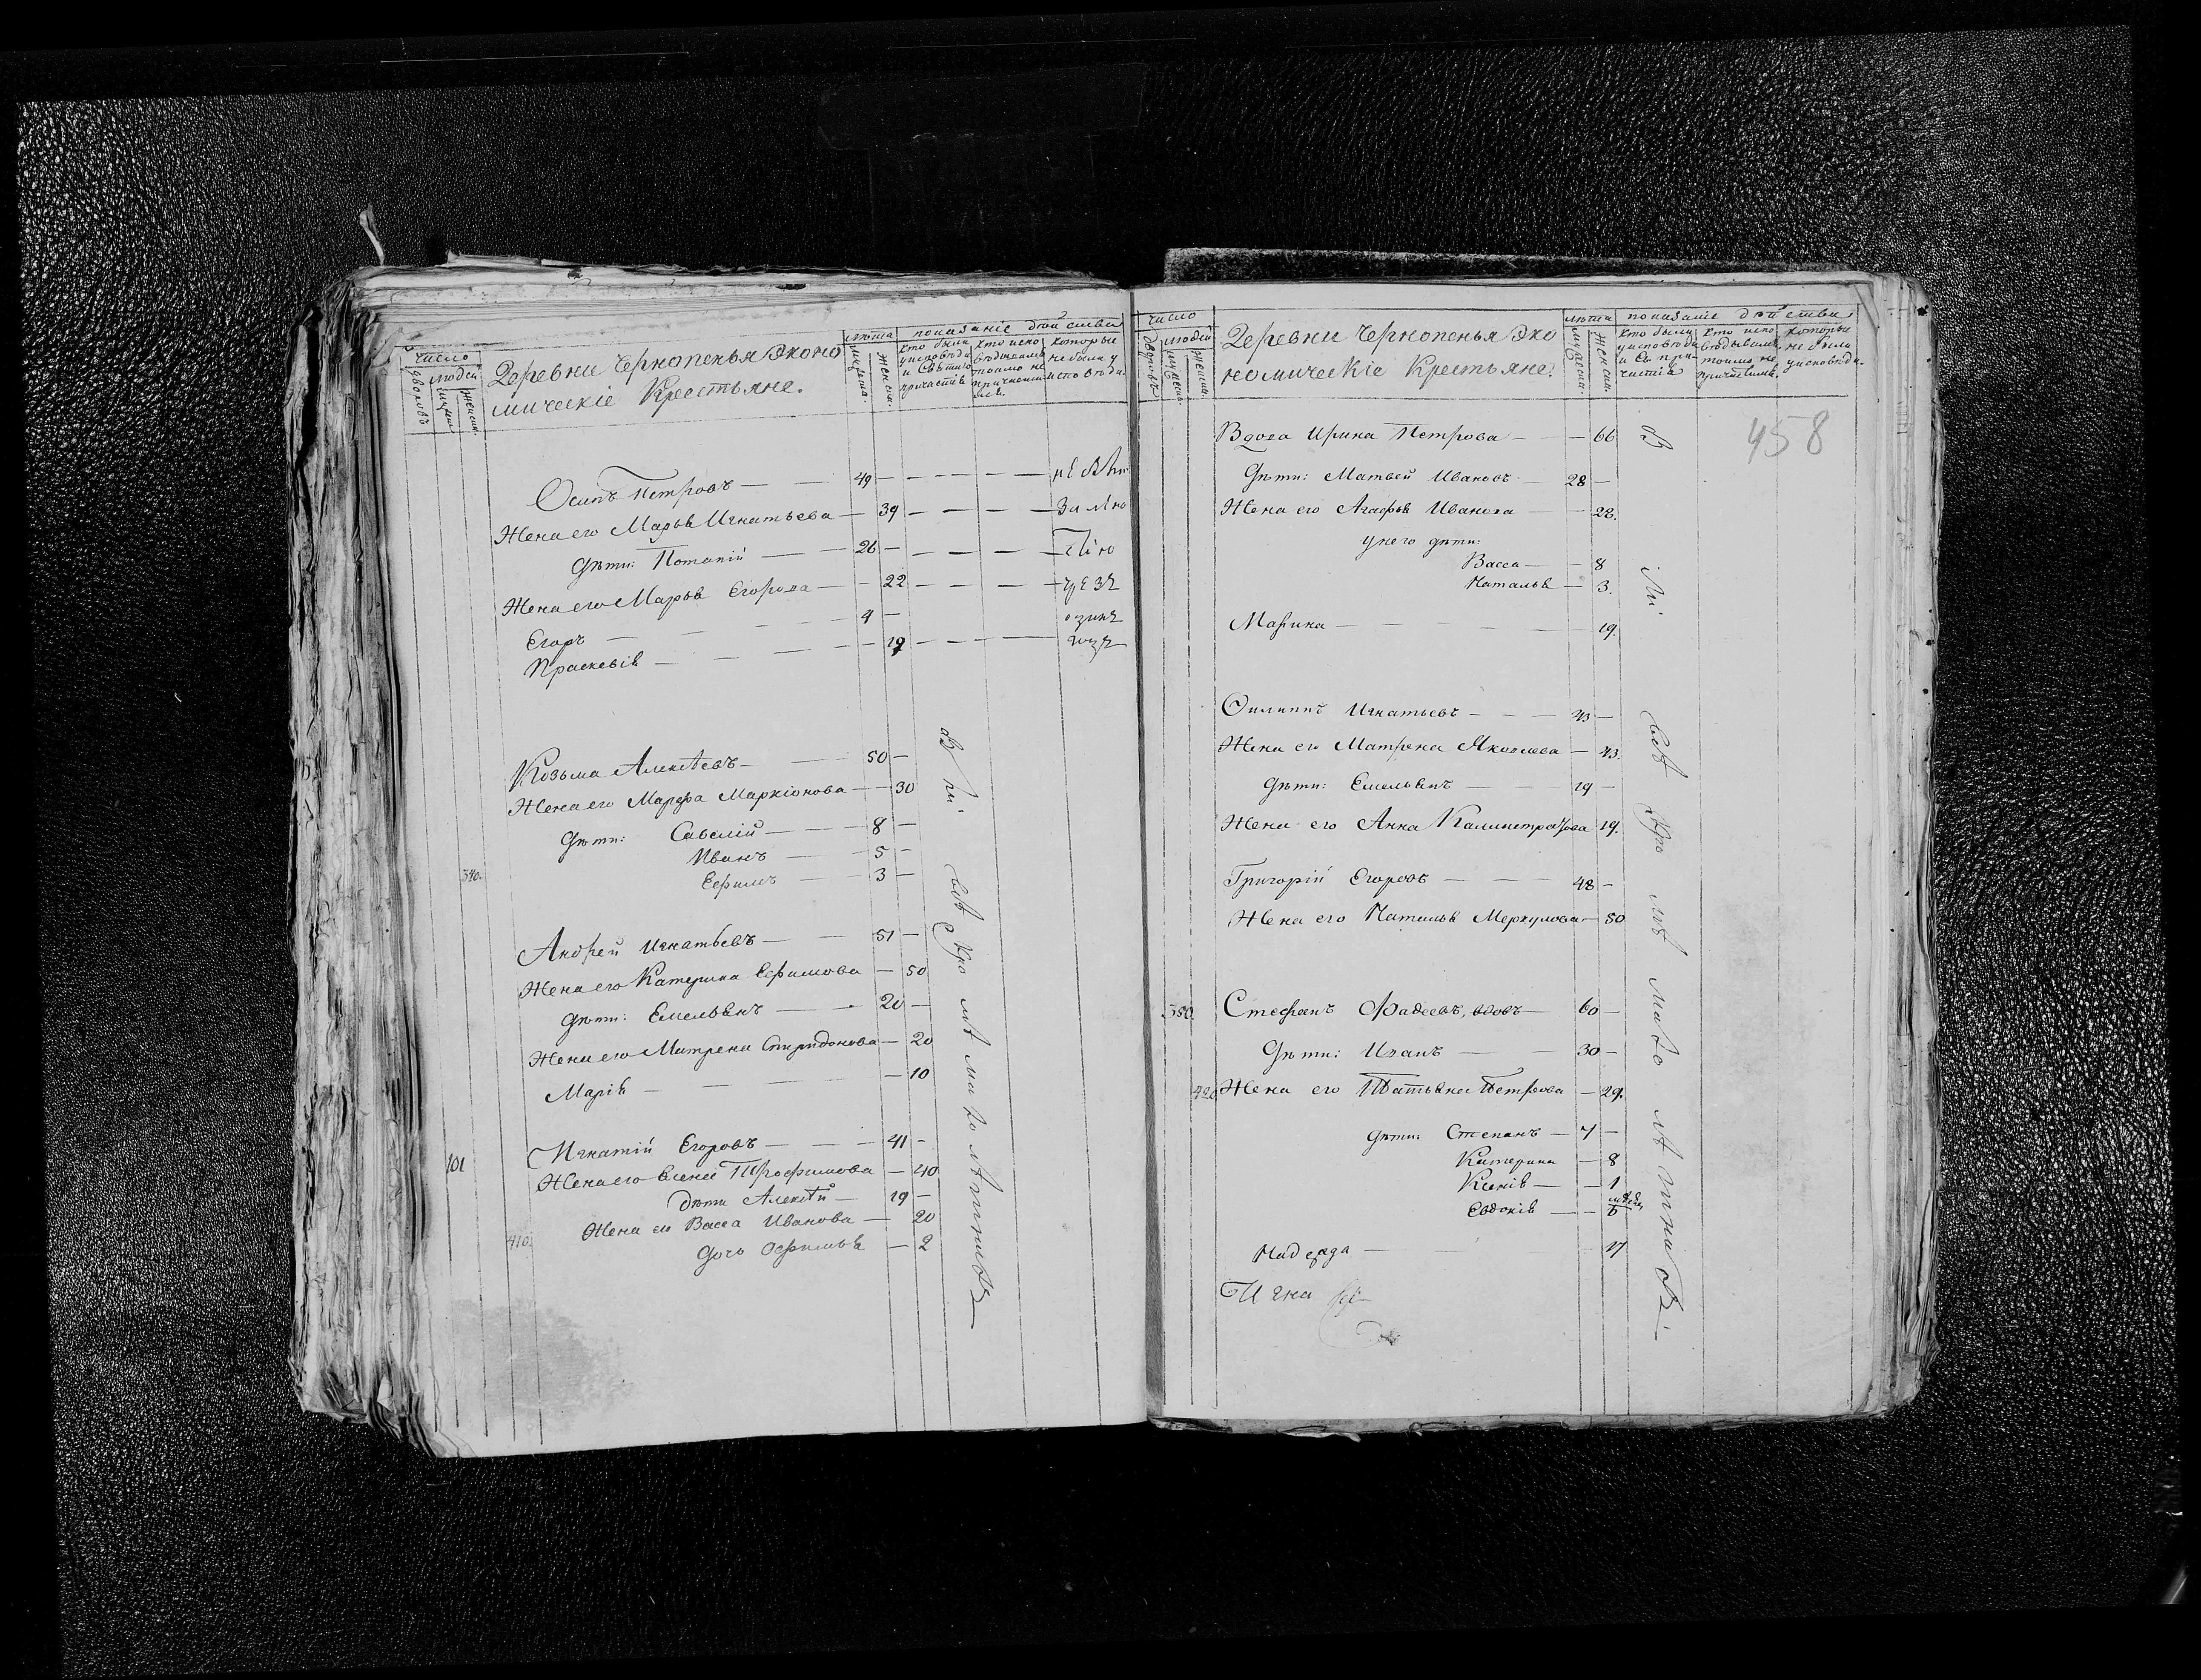 число
людей
дворовъ
мужес.
женск.
Деревни Чернопенья Эконо
мическіе Крестьяне.
лѣта
мужеска.
женска.
показаніе дѣйства
кто были
уисповѣди
и Святаго
причастія
кто испо
вѣдшеемъ
токмо не
причастил
ся.
которые
небыли у
исповѣди.
Осипъ Петровъ — 49 —
Жена его Марья Игнатьева — 39 —
Дѣти: Потапій — 26 —
Жена его Марья Егорова — 22 —
Егоръ — 4 —
Праскевія — 17 —
Козьма Алексѣевъ — 50 —
Жена его Марфа Маркіонова — 30
Дѣти: Савелій — 8 —
Иванъ — 5 —
340. Ефимъ — 3 —
Андрей Игнатьевъ — 51 —
Жена его Катерина Ефимова — 50
Дѣти: Емельянъ — 20 —
Жена его Матрена Спиридонова — 20
Марія — 10
Игнатій Егоровъ — 41 —
101 Жена его Елена Трофимова — 40
Дѣти Алексѣй — 19 —
Жена его Васса Иванова — 20
410. Дочь Ефимья — 2
число
людей
дворовъ
мужеск.
женск.
Деревни Чернопенья Эко
номическіе Крестьяне.
лѣта
мужеск.
женска.
показаніе дѣйства
кто были
уисповѣди
и Св при-
частія
кто испо
вѣдывался
токмо не
причастился.
которые
не были
уисповѣди.
458
Вдова Ирина Петрова — 66
Дѣти: Матвей Ивановъ 28 —
Жена его Агафья Иванова — 28.
у него дѣти:
Васса — 8
Наталья — 3.
Марина — 19.
Филиппъ Игнатьевъ — 43 —
Жена его Матрена Яковлева — 43.
Дѣти: Емельянъ — 19 —
Жена его Анна Калинстратова 19.
Григорій Егоровъ — 48 —
Жена его Наталья Меркулова — 50
350. Стефанъ Фадеевъ, вдовъ — 60 —
Дѣти: Иванъ — 30 —
420 Жена его Татьяна Петрова — 29.
дѣти: Степанъ — 7 —
Катерина — 8
Ксенія — 1
Евдокія — 6
Надежда — 17